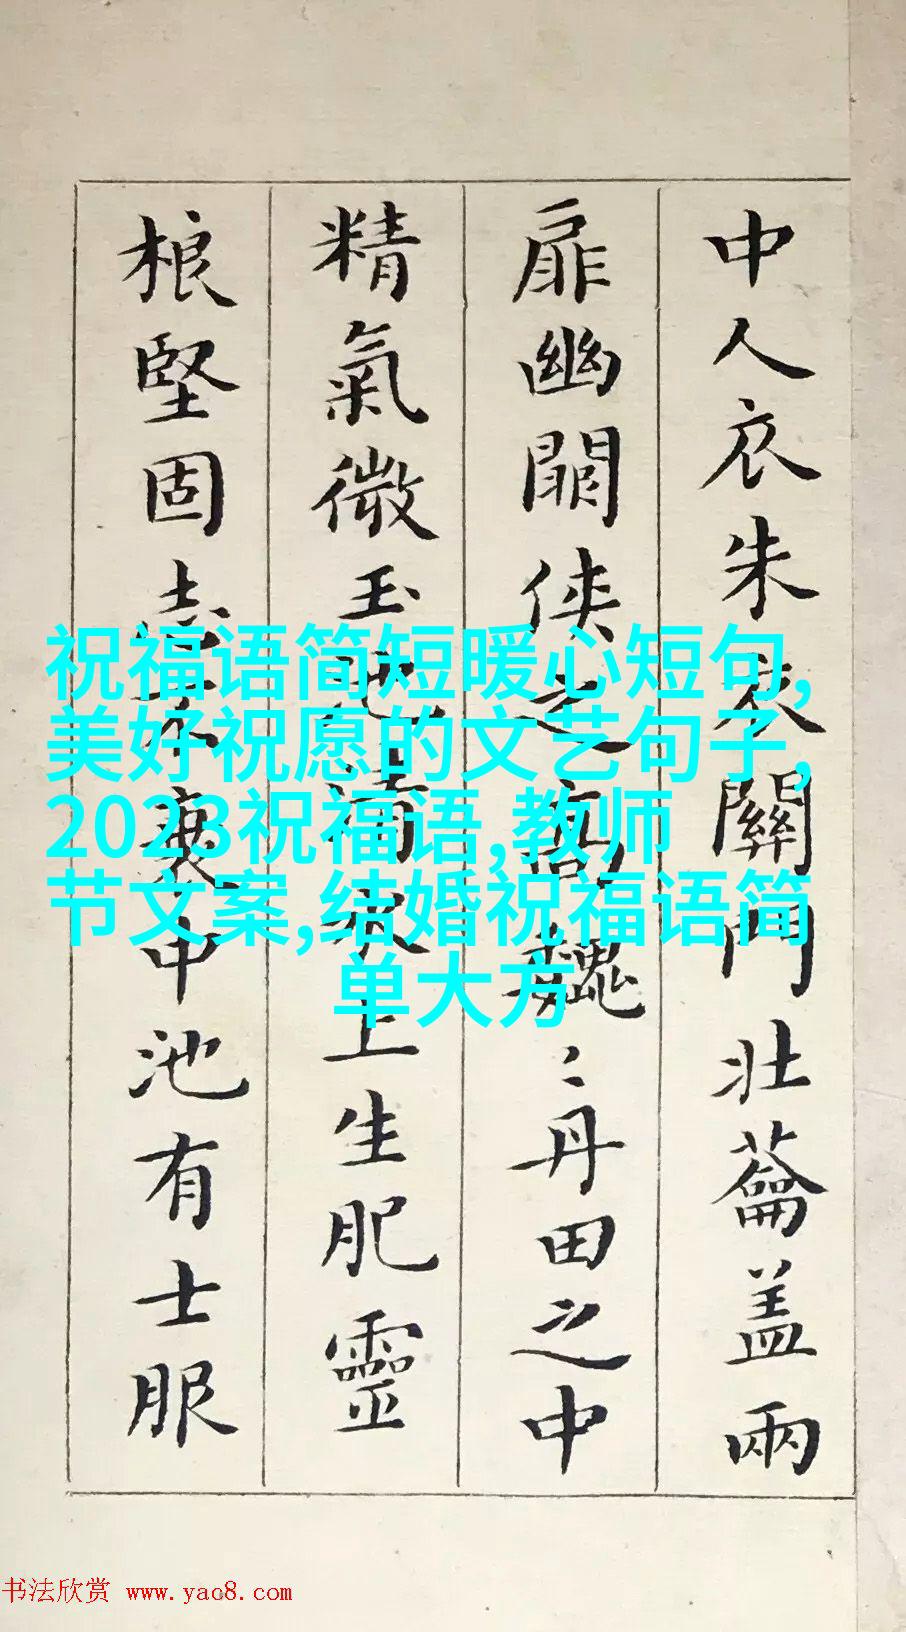 中人衣朱衣關門壯蘥盖兩
扉幽闗侠之高魏〻丹田之中
精氣微玉池清水上生肥靈
根堅固志不衰中池有士服
祝福语简短暖心短句,
美好祝愿的文艺句子,
2023祝福语,教师
节文案,结婚祝福语简
单大方
书法欣赏 www.yac8.com